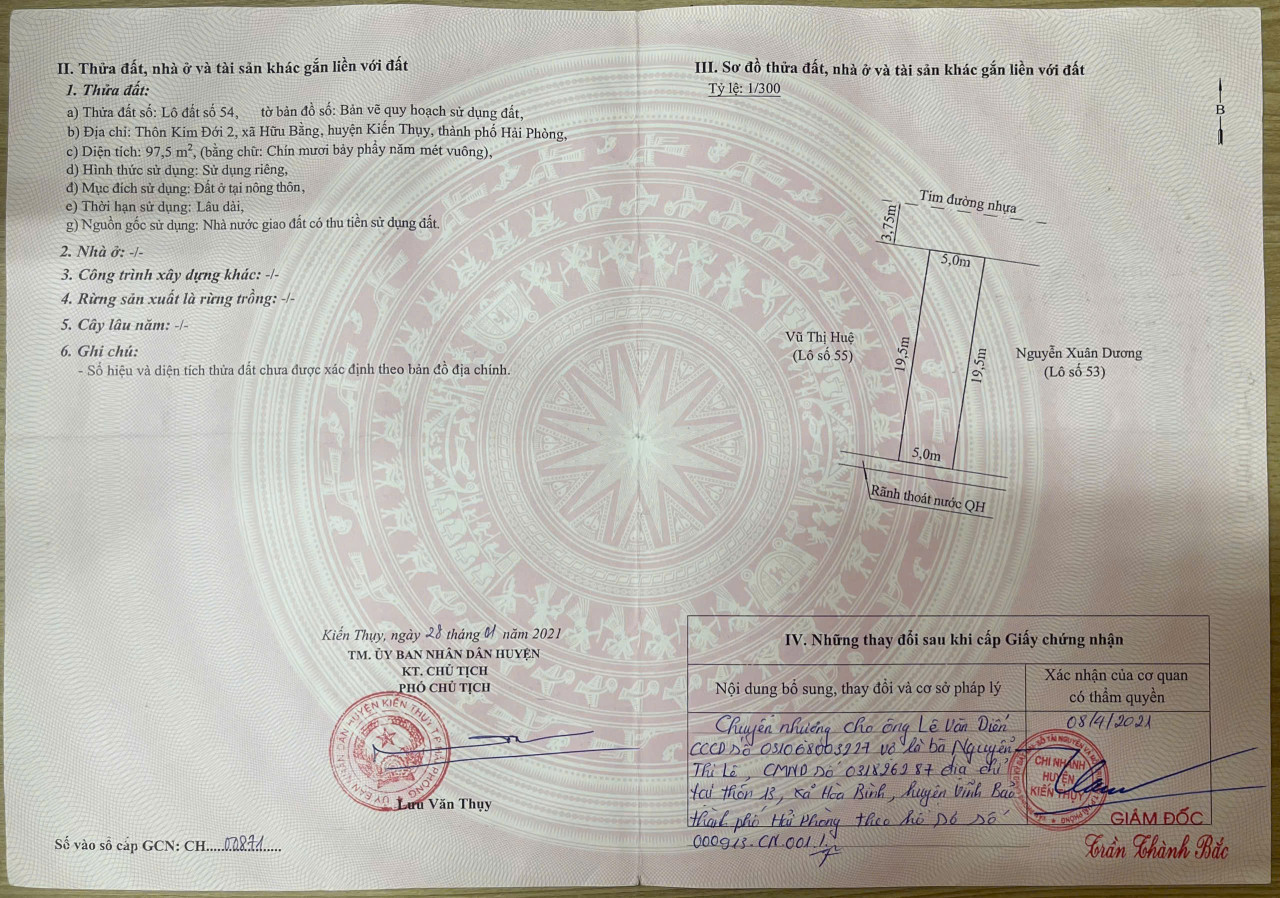 II. Thửa đất, nhà ở và tài sản khác gắn liền với đất
1. Thửa đất:
a) Thửa đất số: Lô đất số 54, tờ bản đồ số: Bản vẽ quy hoạch sử dụng đất,
b) Địa chỉ: Thôn Kim Đới 2, xã Hữu Bằng, huyện Kiến Thụy, thành phố Hải Phòng,
c) Diện tích: 97,5 m², (bằng chữ: Chín mươi bảy phẩy năm mét vuông),
d) Hình thức sử dụng: Sử dụng riêng,
đ) Mục đích sử dụng: Đất ở tại nông thôn,
e) Thời hạn sử dụng: Lâu dài,
g) Nguồn gốc sử dụng: Nhà nước giao đất có thu tiền sử dụng đất.
2. Nhà ở: -/-
3. Công trình xây dựng khác: -/-
4. Rừng sản xuất là rừng trồng: -/-
5. Cây lâu năm: -/-
6. Ghi chú:
- Số hiệu và diện tích thửa đất chưa được xác định theo bản đồ địa chính.
Kiến Thụy, ngày 28 tháng 01 năm 2021
TM. ỦY BAN NHÂN DÂN HUYỆN
KT. CHỦ TỊCH
PHÓ CHỦ TỊCH
ỦY BAN NHÂN DÂN HUYỆN KIẾN THỤY T.P HẢI PHÒNG
Lưu Văn Thụy
Số vào sổ cấp GCN: CH.....00871.....
III. Sơ đồ thửa đất, nhà ở và tài sản khác gắn liền với đất
Tỷ lệ: 1/300
B
Tim đường nhựa
3,75m
5,0m
Vũ Thị Huệ
(Lô số 55)
19,5m
19,5m
Nguyễn Xuân Dương
(Lô số 53)
5,0m
Rãnh thoát nước QH
IV. Những thay đổi sau khi cấp Giấy chứng nhận
Nội dung bổ sung, thay đổi và cơ sở pháp lý
Xác nhận của cơ quan
có thẩm quyền
Chuyển nhượng cho ông Lê Văn Diến
CCCD số 031068003227 vợ là bà Nguyễn
Thị Lê, CMND số 031826287 địa chỉ
tại thôn 13, xã Hòa Bình, huyện Vĩnh Bảo
thành phố Hải Phòng theo hồ sơ số
000913.CN.001./.
08/4/2021
CHI NHÁNH
HUYỆN
KIẾN THỤY
GIÁM ĐỐC
Trần Thành Bắc